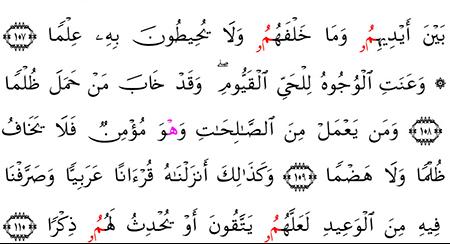 بَيْنَ أَيْدِيهِمُۥ وَمَا خَلْفَهُمُۥ وَلَا يُحِيطُونَ بِهِۦ عِلْمًا ١٠٧
۞ وَعَنَتِ اِ۬لْوُجُوهُ لِلْحَيِّ اِ۬لْقَيُّومِۖ وَقَدْ خَابَ مَنْ حَمَلَ ظُلْمًا
١٠٨ وَمَن يَعْمَلْ مِنَ اَ۬لصَّٰلِحَٰتِ وَهْوَ مُؤْمِنٌ فَلَا يَخَافُ
ظُلْمًا وَلَا هَضْمًا ١٠٩ وَكَذَٰلِكَ أَنزَلْنَٰهُ قُرْءَانًا عَرَبِيًّا وَصَرَّفْنَا
فِيهِ مِنَ اَ۬لْوَعِيدِ لَعَلَّهُمُۥ يَتَّقُونَ أَوْ يُحْدِثُ لَهُمُۥ ذِكْرًا ١١٠